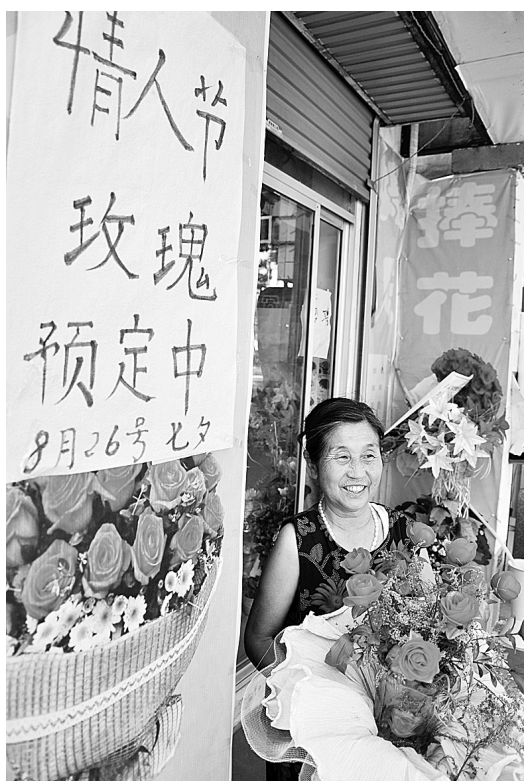 情人节
玫瑰
预定中
8月26号 七夕
捧
花